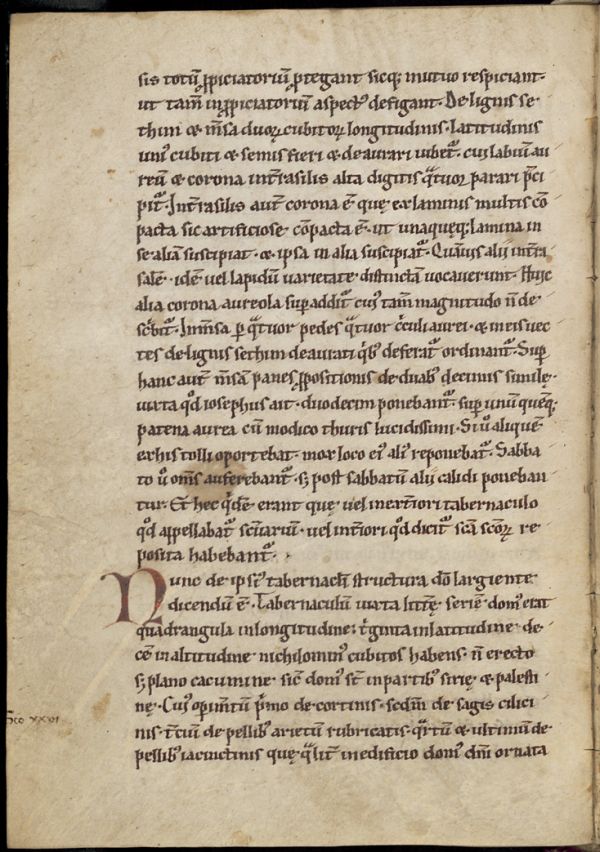 sis totū ꝓpiciatoriū ꝓtegant sicq; mutuo respiciant.
ut tam̄ in ꝓpiciatoriū aspectꝰ defigant. De lignis se
thim & m̄sa duoꝝ cubitoꝝ longitudinis. latitudinis
uniꝰ cubiti & semis fieri & deaurari iubet᷑. cui labium au
reū & corona int̄rasilis alta digitis q̄tuor parari p̄ci
pit᷑. Int̄rasilis aut̄ corona ē que ex laminis multis cō
pacta sic artificiose cōpacta ē. ut unaqueq; lamina in
se aliam suscipiat. & ipsa in alia suscipiat᷑. Quāuis alii int̄ra
salē. idē uel lapidum uarietate distinctā uocauerunt. Huic
alia corona aureola sup addit᷑ cuiꝰ tam̄ magnitudo n̄ de
sc̄bit᷑. In m̄sa p̄ q̄tuor pedes q̄tuor c̄culi aurei. & in eis uec
tes de lignis sethim deaurati q̄bꝰ deferat᷑ ordinant᷑. Sup
hanc aut̄ m̄sam panes ꝓpositionis de duabꝰ decimis similę.
iuxta qd̄ iosephus ait. duodecim ponebant᷑. sup unū quēq;
patena aurea cū modico thuris lucidissimi. Si ū aliquē
ex his tolli oportebat. mox loco eiꝰ aliꝰ reponebat᷑. Sabba
to ū om̄s auferebant᷑. s; post sabbatum alii calidi poneban
tur. Et hec q̄dē erant que uel in ext̄iori tabernaculo
qd̄ appellabat᷑ sc̄uarium. uel int̄iori qd̄ dicit᷑ sc̄a sc̄oꝝ re
posita habebant᷑.
Nunc de ipsiꝰ tabernacli structura dn̄o largiente
dicendū ē. Tabernaculū iuxta litt̄ę seriē domꝰ erat
quadrangula in longitudine t̄ginta in latitudine de
cē in altitudine nichilominꝰ cubitos habens. n̄ erecto
s; plano cacumine. sic̄ domꝰ st̄ in partibꝰ sirię & palesti
nę. Cuiꝰ op̄im̄tū p̄mo de cortinis. sedm̄ de sagis cilici
nis t̄ciū de pellibꝰ arietum rubricatis. q̄rtū & ultimum de
pellibꝰ iacinctinis que q̄lit̄ in edificio domꝰ dn̄i ornata